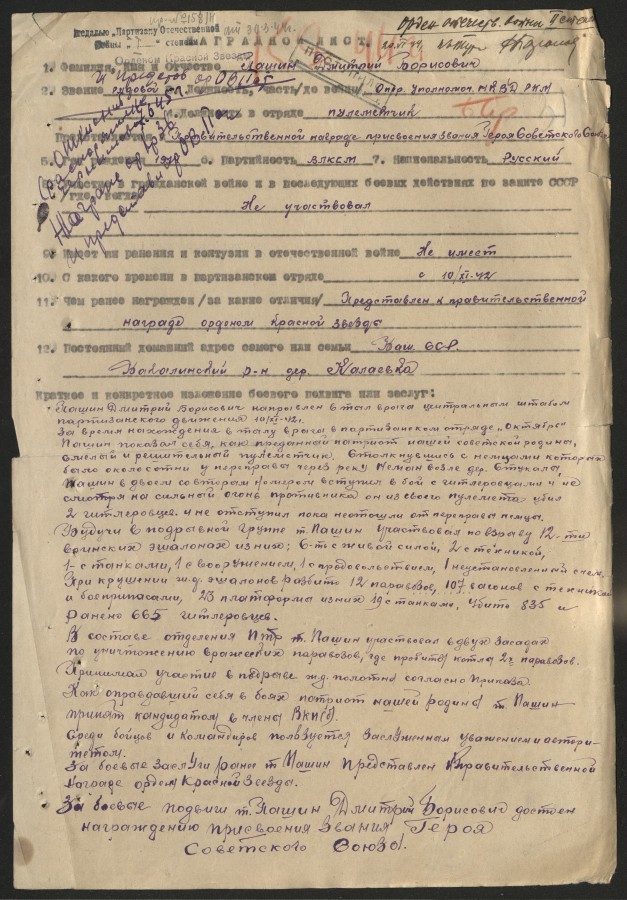 Орден отечеств. войны II степени
Медалью „Партизану Отечественной
Войны" степени
НАГРАДНОЙ ЛИСТ
Орденом Красной Звезды
1. Фамилия, Имя и Отчество Пашин Дмитрий Борисович
2. Звание рядовой Должность, часть/до войны/ Опер. уполномоч. РКМ
Должность в отряде пулеметчик
Представляется к правительственной награде присвоения звания Героя Советского Союза
6. Партийность ВЛКСМ 7. Национальность Русский
Участие в гражданской войне и в последующих боевых действиях по защите СССР
где, когда/
Не участвовал
9. Имеет ли ранения и контузии в отечественной войне Не имеет
10. С какого времени в партизанском отряде с 10/XI-42
11. Чем ранее награжден /за какие отличия/ Представлен к правительственной
награде орденом Красной звезда
12. Постоянный домашний адрес самого или семьи Баш. ССР.
Бакалинский р-н дер. Калаевка
Краткое и конкретное изложение боевого подвига или заслуг:
Пашин Дмитрий Борисович направлен в тыл врага центральным штабом
партизанского движения 10/XI-42г.
За время нахождения в тылу врага в партизанском отряде „Октябрь"
Пашин показал себя, как преданный патриот нашей советской родины,
смелый и решительный пулеметчик. Столкнувшись с немцами которых
было около сотни у переправы через реку Неман возле дер. Стукалы,
Пашин в двоем со вторым номером вступил в бой с гитлеровцами и не
смотря на сильный огень противника он из своего пулемета убил
2 гитлеровцев. и не отступил пока не отошли от переправы немцы.
Будучи в подрывной группе т. Пашин участвовал по взрыву 12-ти
воинских эшалонах из них: 6-ть с живой силой, 2 с техникой,
1- с танками, 1 с вооружением, 1 с продовольствием, 1 неустановленный
При крушении ж.д. эшалонов разбито 12 паравозов, 107 вагонов с техникой
и боеприпасами, 23 платформы из них 19 с танками, Убито 835 и
Ранено 665 гитлеровцев.
В составе отделения ПТР т. Пашин участвовал в двух засадах
по уничтожению вражеских паравозов, где пробиты котлы 2х паравозов.
Принимал участие в подрыве ж.д. полотна согласно Приказа.
Как оправдавший себя в боях патриот нашей родины т. Пашин
принят кандидатом в члены ВКП(б).
Среди бойцов и командиров пользуется заслуженным уважением и автори-
тетом.
За боевые заслуги ранее т Пашин представлен к правительственной
Награде орден Красной Звезда.
За боевые подвиги т. Пашин Дмитрий Борисович достоен
награждению присвоения Звания Героя
Советского Союза.